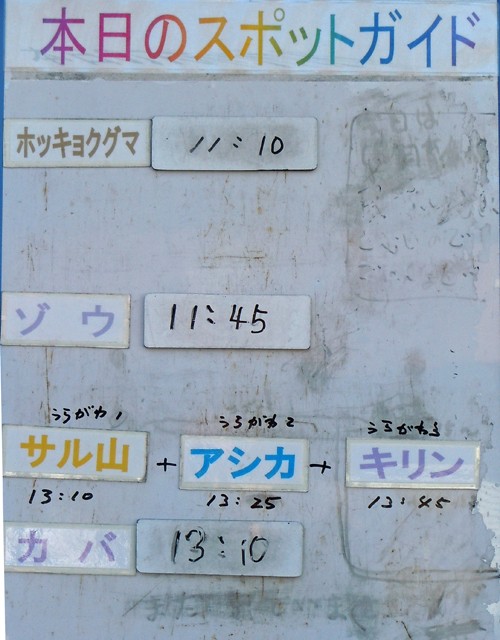 本日のスポットガイド
ホッキョクグマ 11:10
ゾウ 11:45
うらがわ1 うらがわ2 うらがわ3
サル山 + アシカ + キリン
13:10 13:25 13:45
カバ 13:10